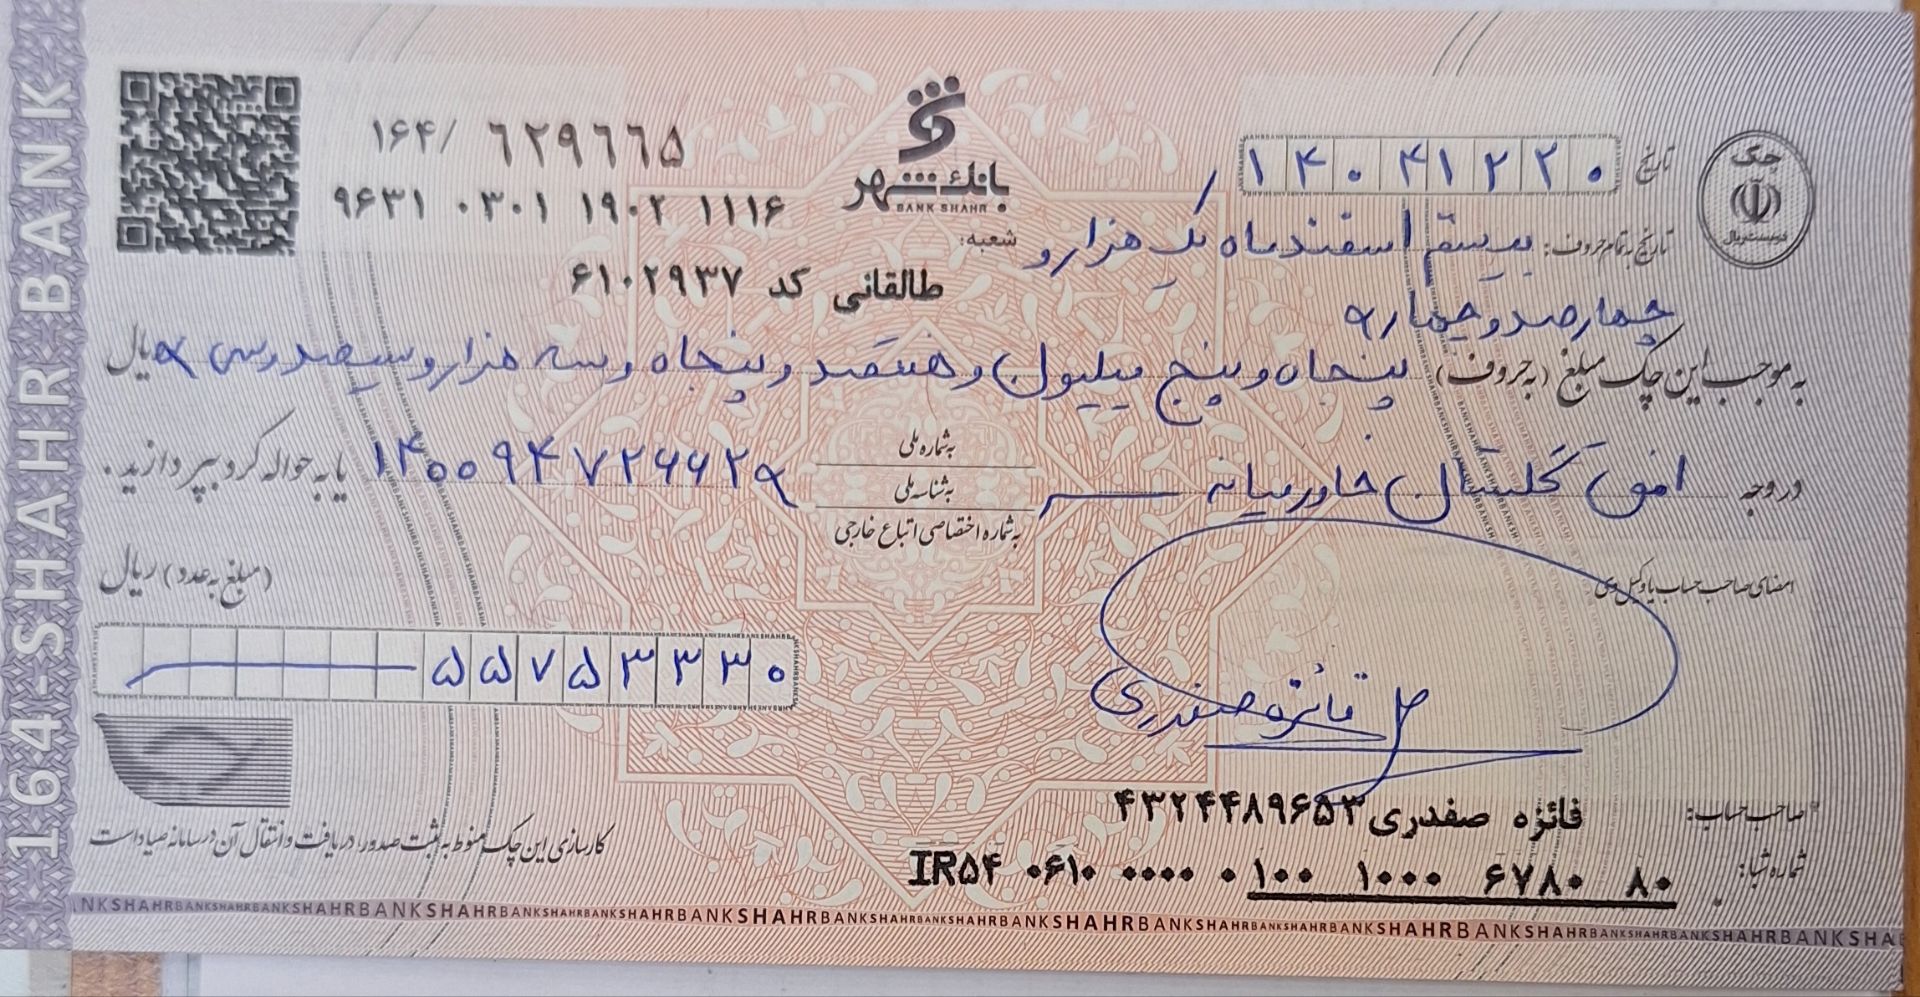 1164-SHAHR BANK
۱۶۴/ ۶۲۹۶۶۵
۹۶۳۱ ۰۳۰۱ ۱۹۰۲ ۱۱۱۶
بانک شهر
BANK SHAHR
شعبه:
طالقانی کد ۶۱۰۲۹۳۷
چک
تاریخ ۱۴۰۴۱۲۲۰
تاریخ به تمام حروف: بیستم اسفند ماه یک هزار و
چهارصد و چهار
به موجب این چک مبلغ (به حروف) پنجاه و پنج میلیون و هفتصد و پنجاه و سه هزار و سیصد و سی ریال
در وجه افق گلستان خاورمیانه
به شماره ملی
به شناسه ملی
به شماره اختصاصی اتباع خارجی
۱۴۰۰۹۴۷۲۶۶۲ یا به حواله کرد بپردازید.
(مبلغ به عدد) ریال
۵۵۷۵۳۳۳۰
امضای صاحب حساب یا وکیل وی
فائزه صفدری
صاحب حساب: فائزه صفدری ۴۳۲۴۴۸۹۶۵۳
شماره شبا: IR۵۴ ۰۶۱۰ ۰۰۰۰ ۰۱۰۰ ۱۰۰۰ ۶۷۸۰ ۸۰
کارسازی این چک منوط به ثبت صدور، دریافت و انتقال آن در سامانه صیاد است